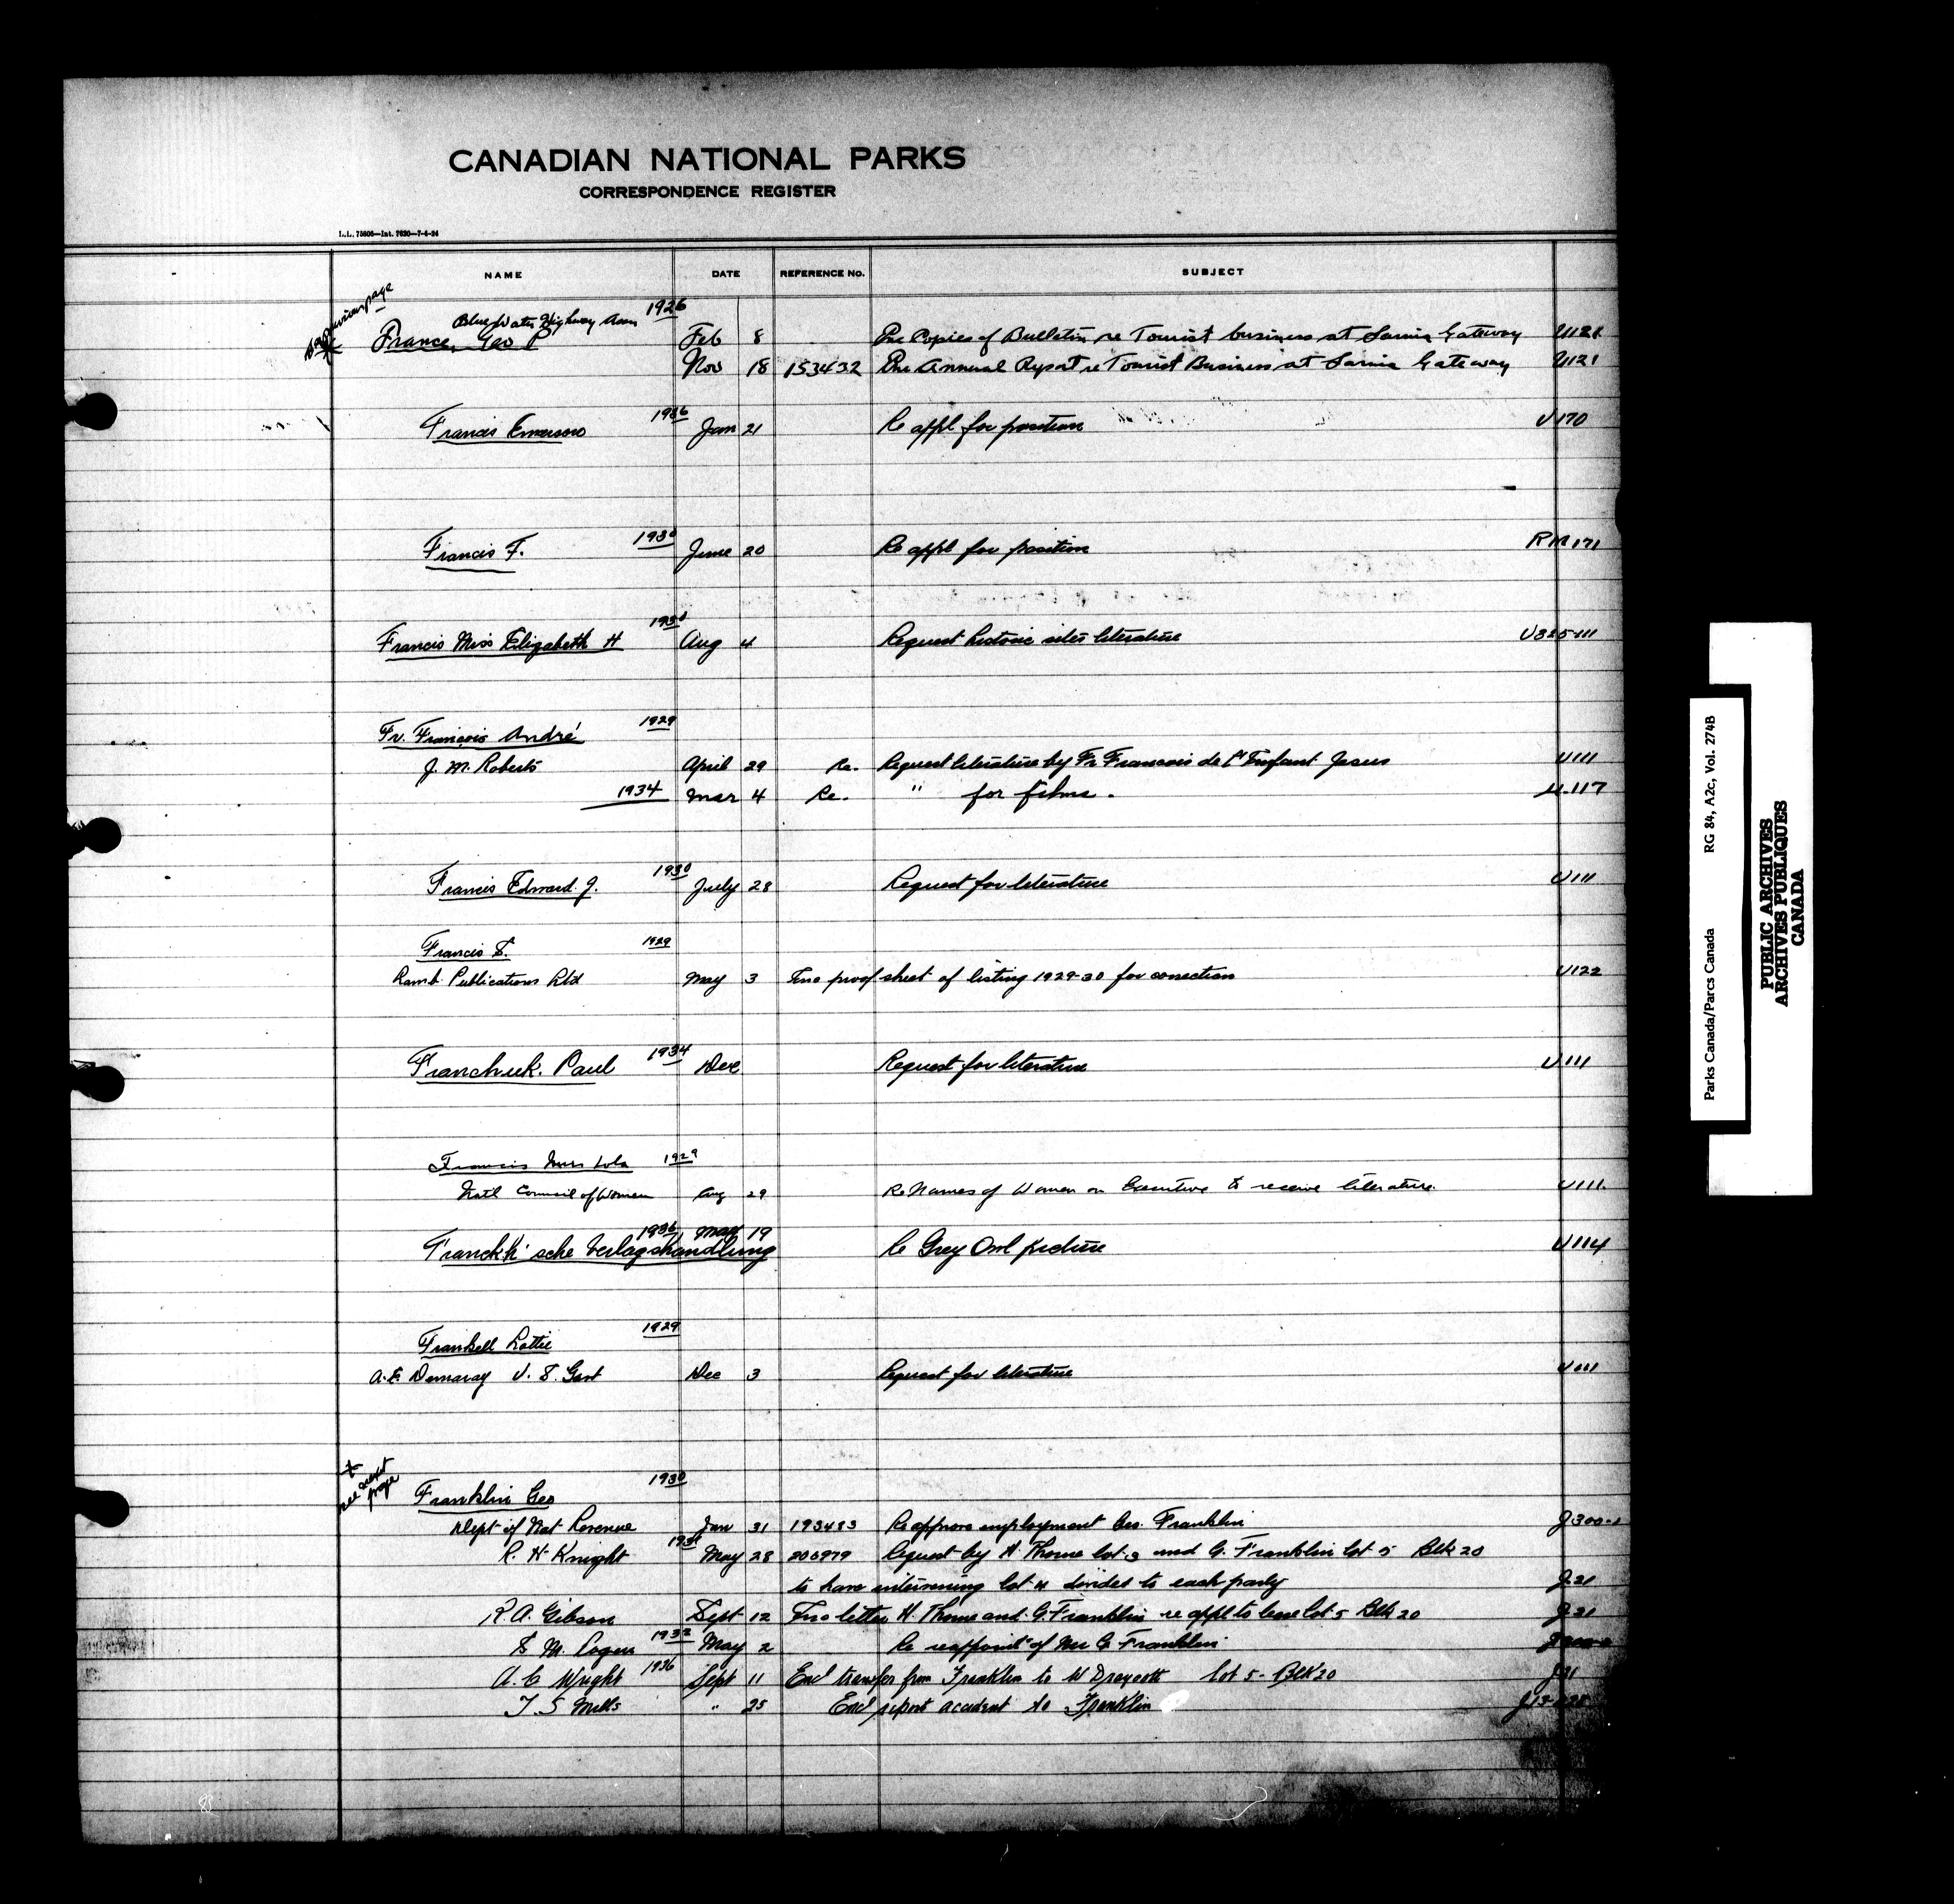 CANADIAN NATIONAL PARKS
CORRESPONDENCE REGISTER
I.L. 75605—Int. 7630—7-4-24
NAME DATE REFERENCE No. SUBJECT
page
Blue Water Highway Assn 1926
France, Geo P Feb 8 Copies of Bulletin re Tourist business at Sarnia Gateway U121
Nov 18 153432 Annual Report re Tourist Business at Sarnia Gateway U121
Francis Emerson 1936 Jan 21 Re appl for position U170
Francis F. 1930 June 20 Re appl for position RM171
Francis Miss Elizabeth H 1930 Aug 4 Request historic sites literature U325-111
Fr. Francois André 1929
J. M. Roberts April 29 Re. Request literature by Fr Francois de l'Enfant Jesus U111
1934 Mar 4 Re. " for films. U.117
Francis Edward J. 1930 July 28 Request for literature U111
Francis S. 1929
Publications Ltd May 3 proof sheet of listing 1929-30 for correction U122
Franchuk. Paul 1934 Dec Request for literature U111
Francis Mrs Lola 1929
Nat'l Council of Women Aug 29 Re Names of Women on Executive to receive literature U111
Franckh'sche Verlagshandlung 1936 May 19 Re Grey Owl picture U114
Lottie 1929
A. E. Demaray U. S. Govt Dec 3 Request for literature U111
+ see next page
Franklin Geo 1930
Dept of Nat Revenue Jan 31 193483 Re employment Geo. Franklin J300-1
R. H. Knight May 28 200979 Request by H Thorne lot 3 and G. Franklin lot 5 Blk 20
to have intervening lot 4 divided to each party J21
R. A. Gibson Sept 12 letter H. Thorne and G. Franklin re appl to lease lot 5 Blk 20 J21
S M. Rogers 1932 May 2 Re reappoint of Mr G Franklin
A. C Wright 1936 Sept 11 Encl transfer from Franklin to W Draycott Lot 5 - Blk 20 J21
T. S Mills " 25 Encl report accident to Franklin
Parks Canada/Parcs Canada RG 84, A2c, Vol. 274B
PUBLIC ARCHIVES
ARCHIVES PUBLIQUES
CANADA